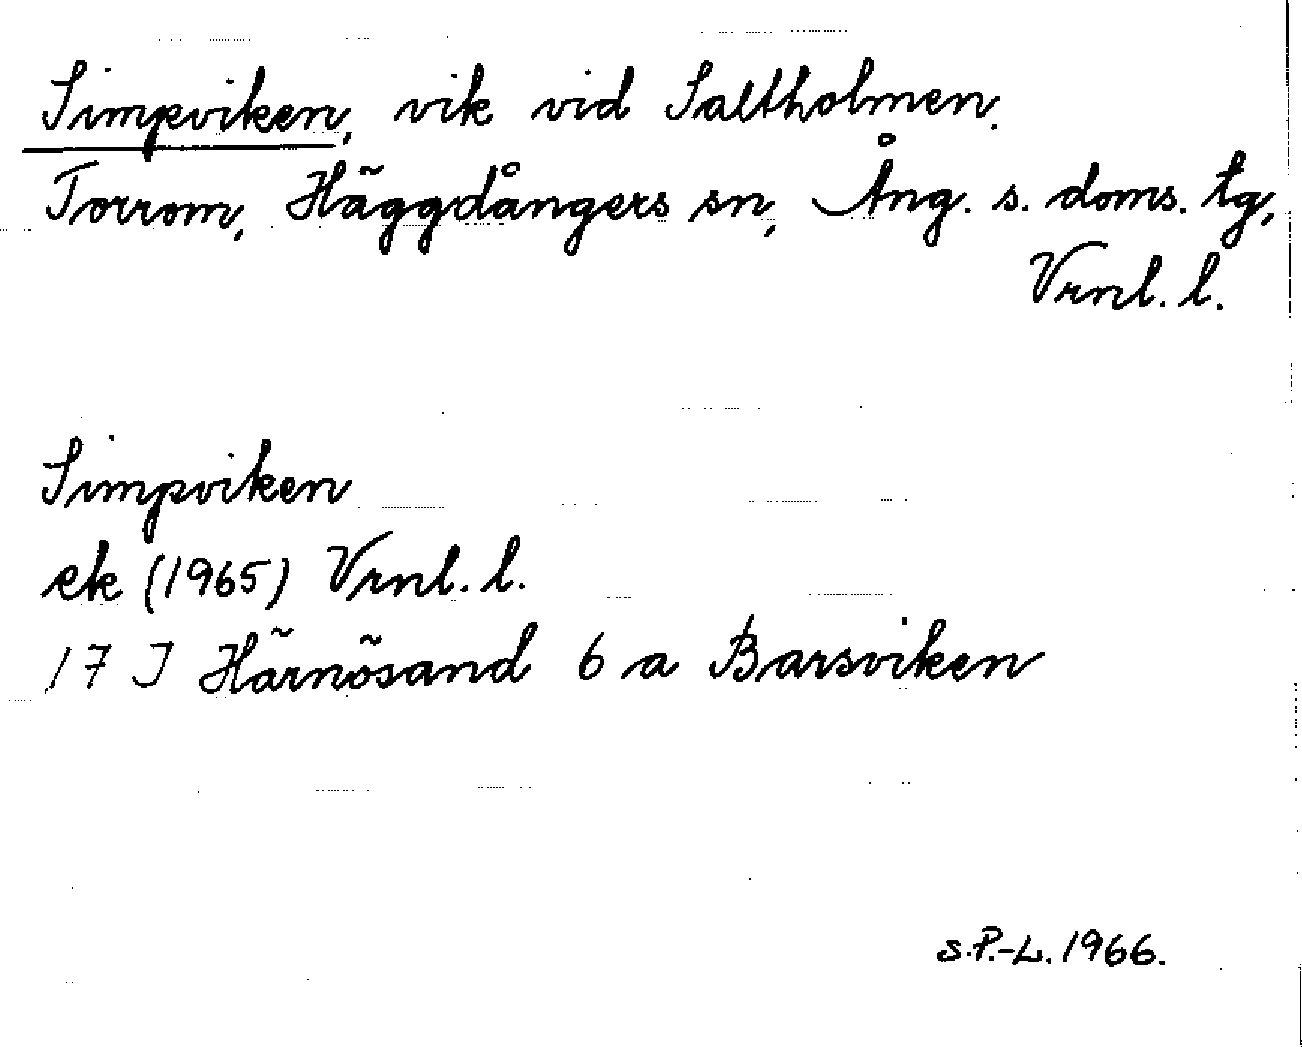 Simpviken, vik vid Saltholmen.
Torrom, Häggdångers sn, Ång. s. doms. tg,
Vrnl. l.
Simpviken
ek (1965) Vrnl. l.
17 I Härnösand 6 a Barsviken
S.P.-L. 1966.